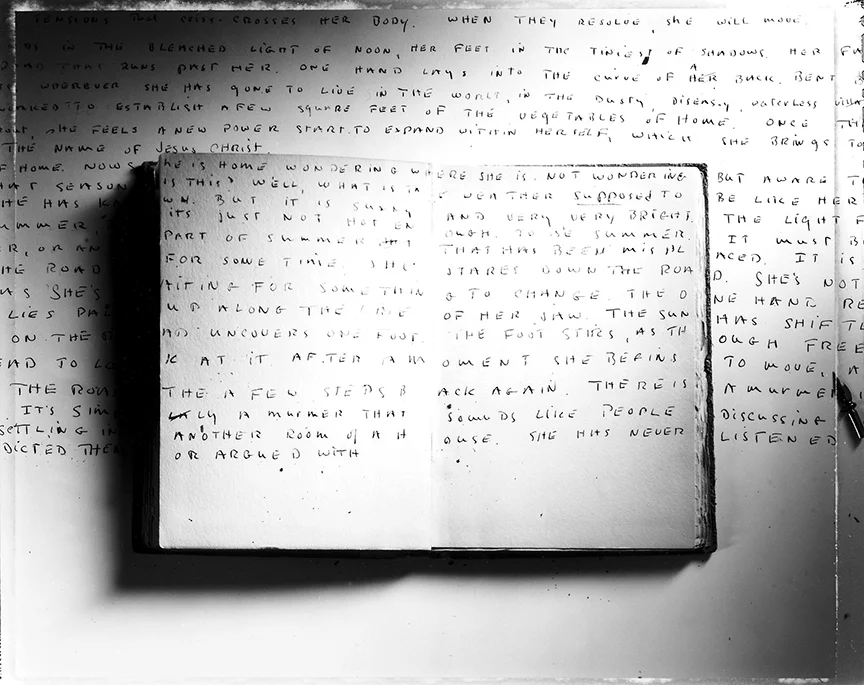 TENSIONS that CRISS-CROSSES HER BODY. WHEN THEY RESOLVE, SHE WILL MOVE.
IN THE BLEACHED LIGHT OF NOON, HER FEET IN THE TINIEST OF SHADOWS. HER
THAT RUNS PAST HER. ONE HAND LAYS INTO THE CURVE OF HER BACK, BENT
WHEREVER SHE HAS GONE TO LIVE IN THE WORLD, IN THE DUSTY, DISEASY, WATERLESS
TO ESTABLISH A FEW SQUARE FEET OF THE VEGETABLES OF HOME. ONCE
SHE FEELS A NEW POWER START TO EXPAND WITHIN HERSELF, WHICH SHE BRINGS
THE NAME OF JESUS CHRIST
OF HOME. NOW S HE IS HOME WONDERING WHERE SHE IS. NOT WONDERING BUT AWARE
SEASON IS THIS? WELL, WHAT IS WEATHER SUPPOSED TO BE LIKE HER
HE HAS WN. BUT IT IS SUNNY AND VERY VERY BRIGHT. THE LIGHT
UMMER, ITS JUST NOT HOT EN OUGH. TO BE SUMMER. IT MUST B
R, OR AN PART OF SUMMER THAT THAT HAS BEEN MISPL ACED. IT IS
HE ROAD FOR SOME TIME. SHE STARES DOWN THE ROA D. SHE'S NOT
AS SHE'S AITING FOR SOMETHIN G TO CHANGE. THE O NE HAND RE
LIES UP ALONG THE LINE OF HER JAW. THE SUN HAS SHIFT
ON THE AND UNCOVERS ONE FOOT. THE FOOT STIRS, AS TH OUGH FREE
EAD TO LO K AT IT. AFTER A M OMENT SHE BEGINS TO MOVE,
THE ROA THE A FEW STEPS B ACK AGAIN. THERE IS A MURMER
IT'S SIM LY A MURMER THAT SOUNDS LIKE PEOPLE DISCUSSING
SETTLING IN ANOTHER ROOM of A H OUSE. SHE HAS NEVER LISTENED
DICTED THE OR ARGUED WITH